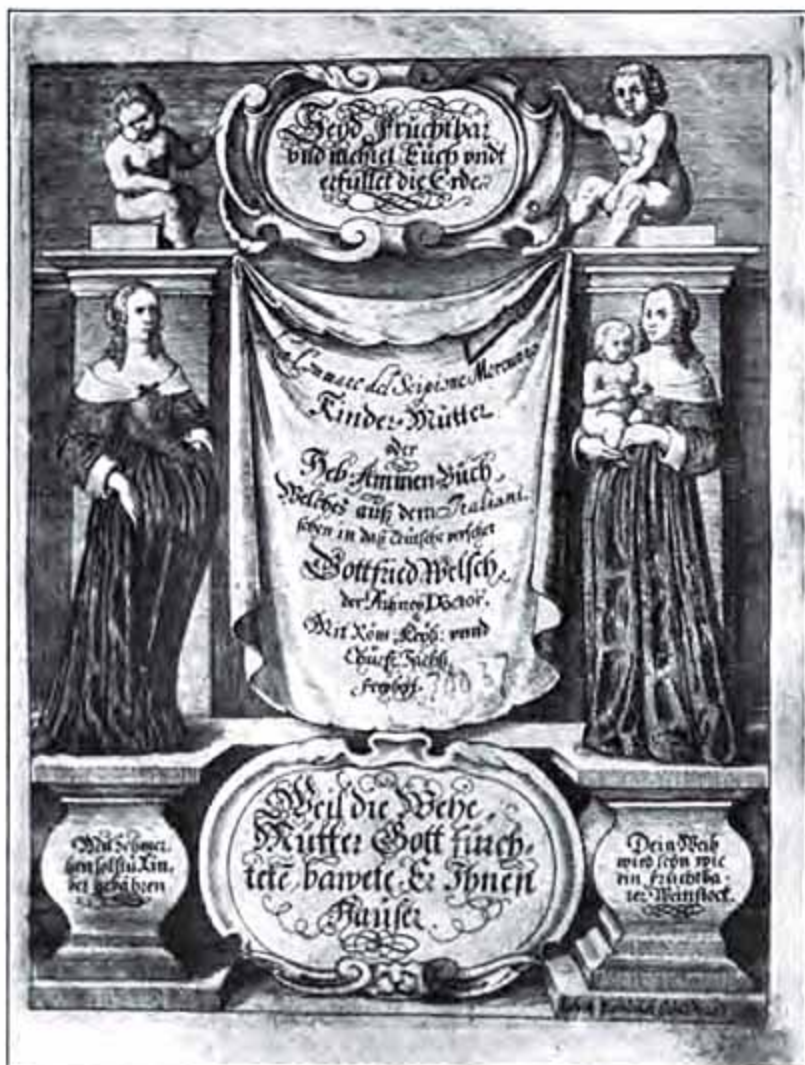 Seyd Fruchtbar
vnd mehret Euch vndt
erfullet die Erde.
La Commare del Scipione Mercurio
Kinder-Mutter
oder
Heb-Ammen-Buch,
Welches auß dem Italiani-
schen in daß Teutsche versetzet
Gottfried Welsch,
der Artzney Doctor.
Mit Röm: Keyß: vnnd
Churf: Sächß:
freyheit.
Mit Schmer-
tzen solstu Kin-
der gebähren
Weil die Wehe-
Mutter Gott fürch-
tetē bawete Er Ihnen
Häuser.
Dein Weib
wird seyn wie
ein fruchtba-
rer Weinstock.